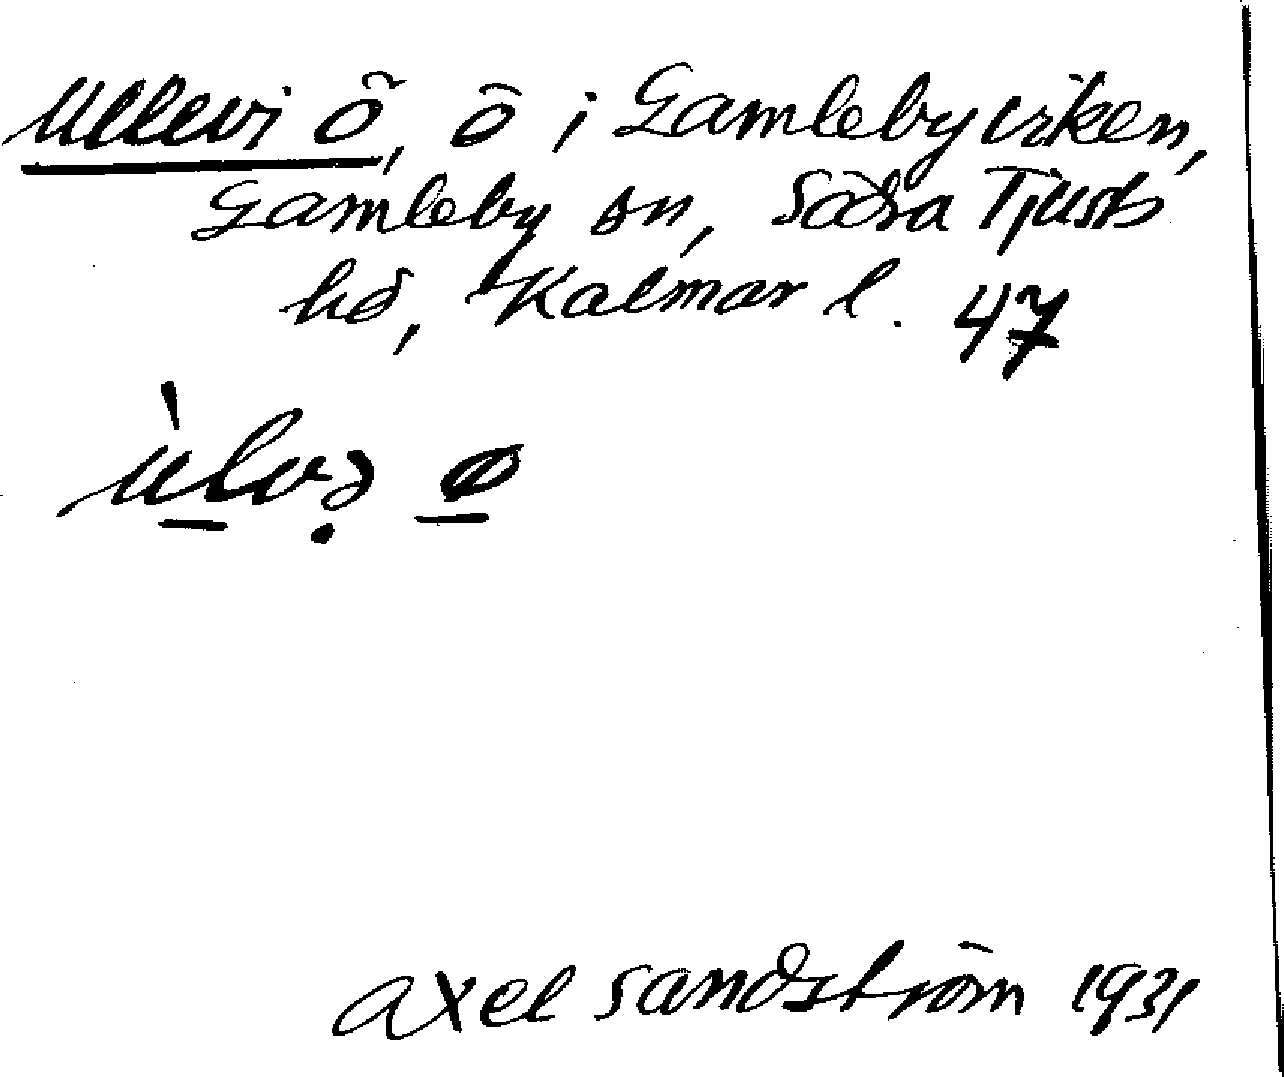 Ullevi ö, ö i Gamlebyviken,
Gamleby sn, Södra Tjusts
hd, Kalmar l. 47
ùlvə ø
Axel Sandström 1931